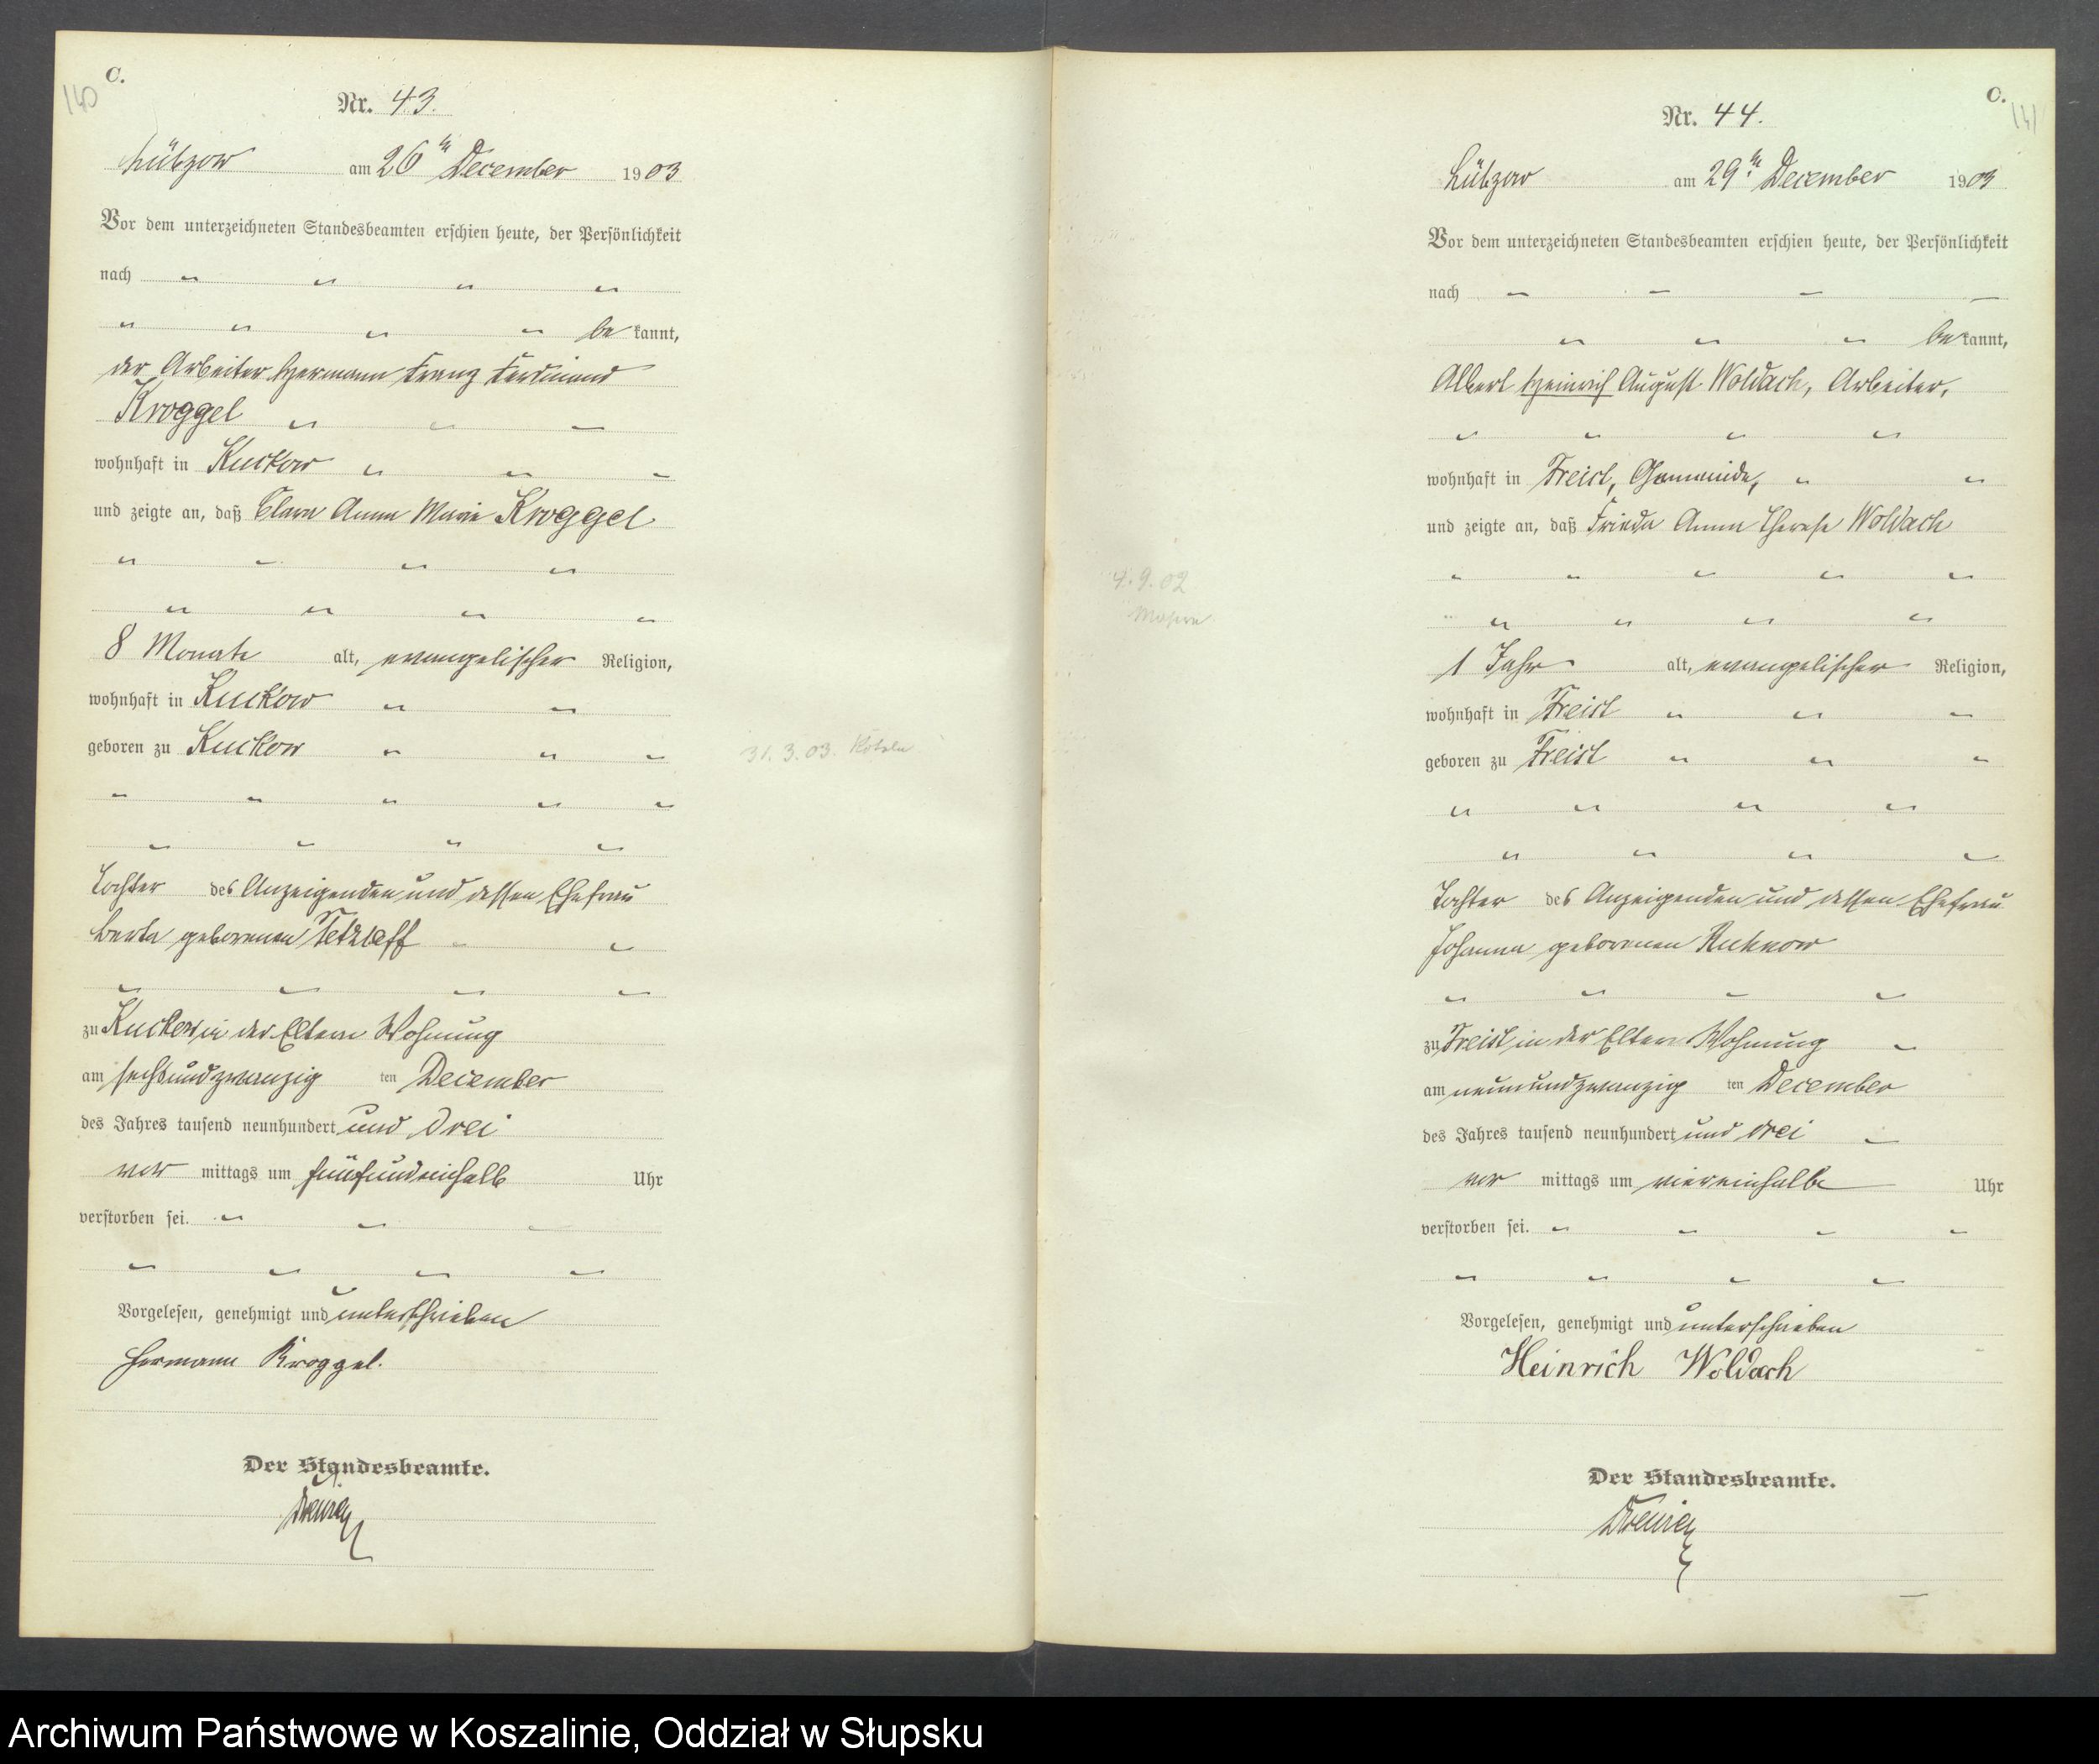 C.
140
Nr. 43.
Lübzow am 26ten December 1903
Vor dem unterzeichneten Standesbeamten erschien heute, der Persönlichkeit
nach
be kannt,
der Arbeiter Hermann Franz Ferdinand
Kroggel
wohnhaft in Kuckow
und zeigte an, daß Clara Anna Marie Kroggel
8 Monate alt, evangelischer Religion,
wohnhaft in Kuckow
geboren zu Kuckow
31.3.03.
Tochter des Anzeigenden und dessen Ehefrau
Berta geborenen Tetzlaff
zu Kuckow in der Eltern Wohnung
am sechsundzwanzig ten December
des Jahres tausend neunhundert und drei
vor mittags um fünfundeinhalb Uhr
verstorben sei.
Vorgelesen, genehmigt und unterschrieben
Hermann Kroggel.
Der Standesbeamte.
C.
141
Nr. 44.
Lübzow am 29ten December 1903
Vor dem unterzeichneten Standesbeamten erschien heute, der Persönlichkeit
nach
be kannt,
Albert Heinrich August Woldach, Arbeiter,
wohnhaft in Freist, Gemeinde,
und zeigte an, daß Frieda Anna Therese Woldach
4.9.02
1 Jahr alt, evangelischer Religion,
wohnhaft in Freist
geboren zu Freist
Tochter des Anzeigenden und dessen Ehefrau
Johanna geborenen Ruhnow
zu Freist in der Eltern Wohnung
am neunundzwanzig ten December
des Jahres tausend neunhundert und drei
vor mittags um viereinhalb Uhr
verstorben sei.
Vorgelesen, genehmigt und unterschrieben
Heinrich Woldach
Der Standesbeamte.
Archiwum Państwowe w Koszalinie, Oddział w Słupsku